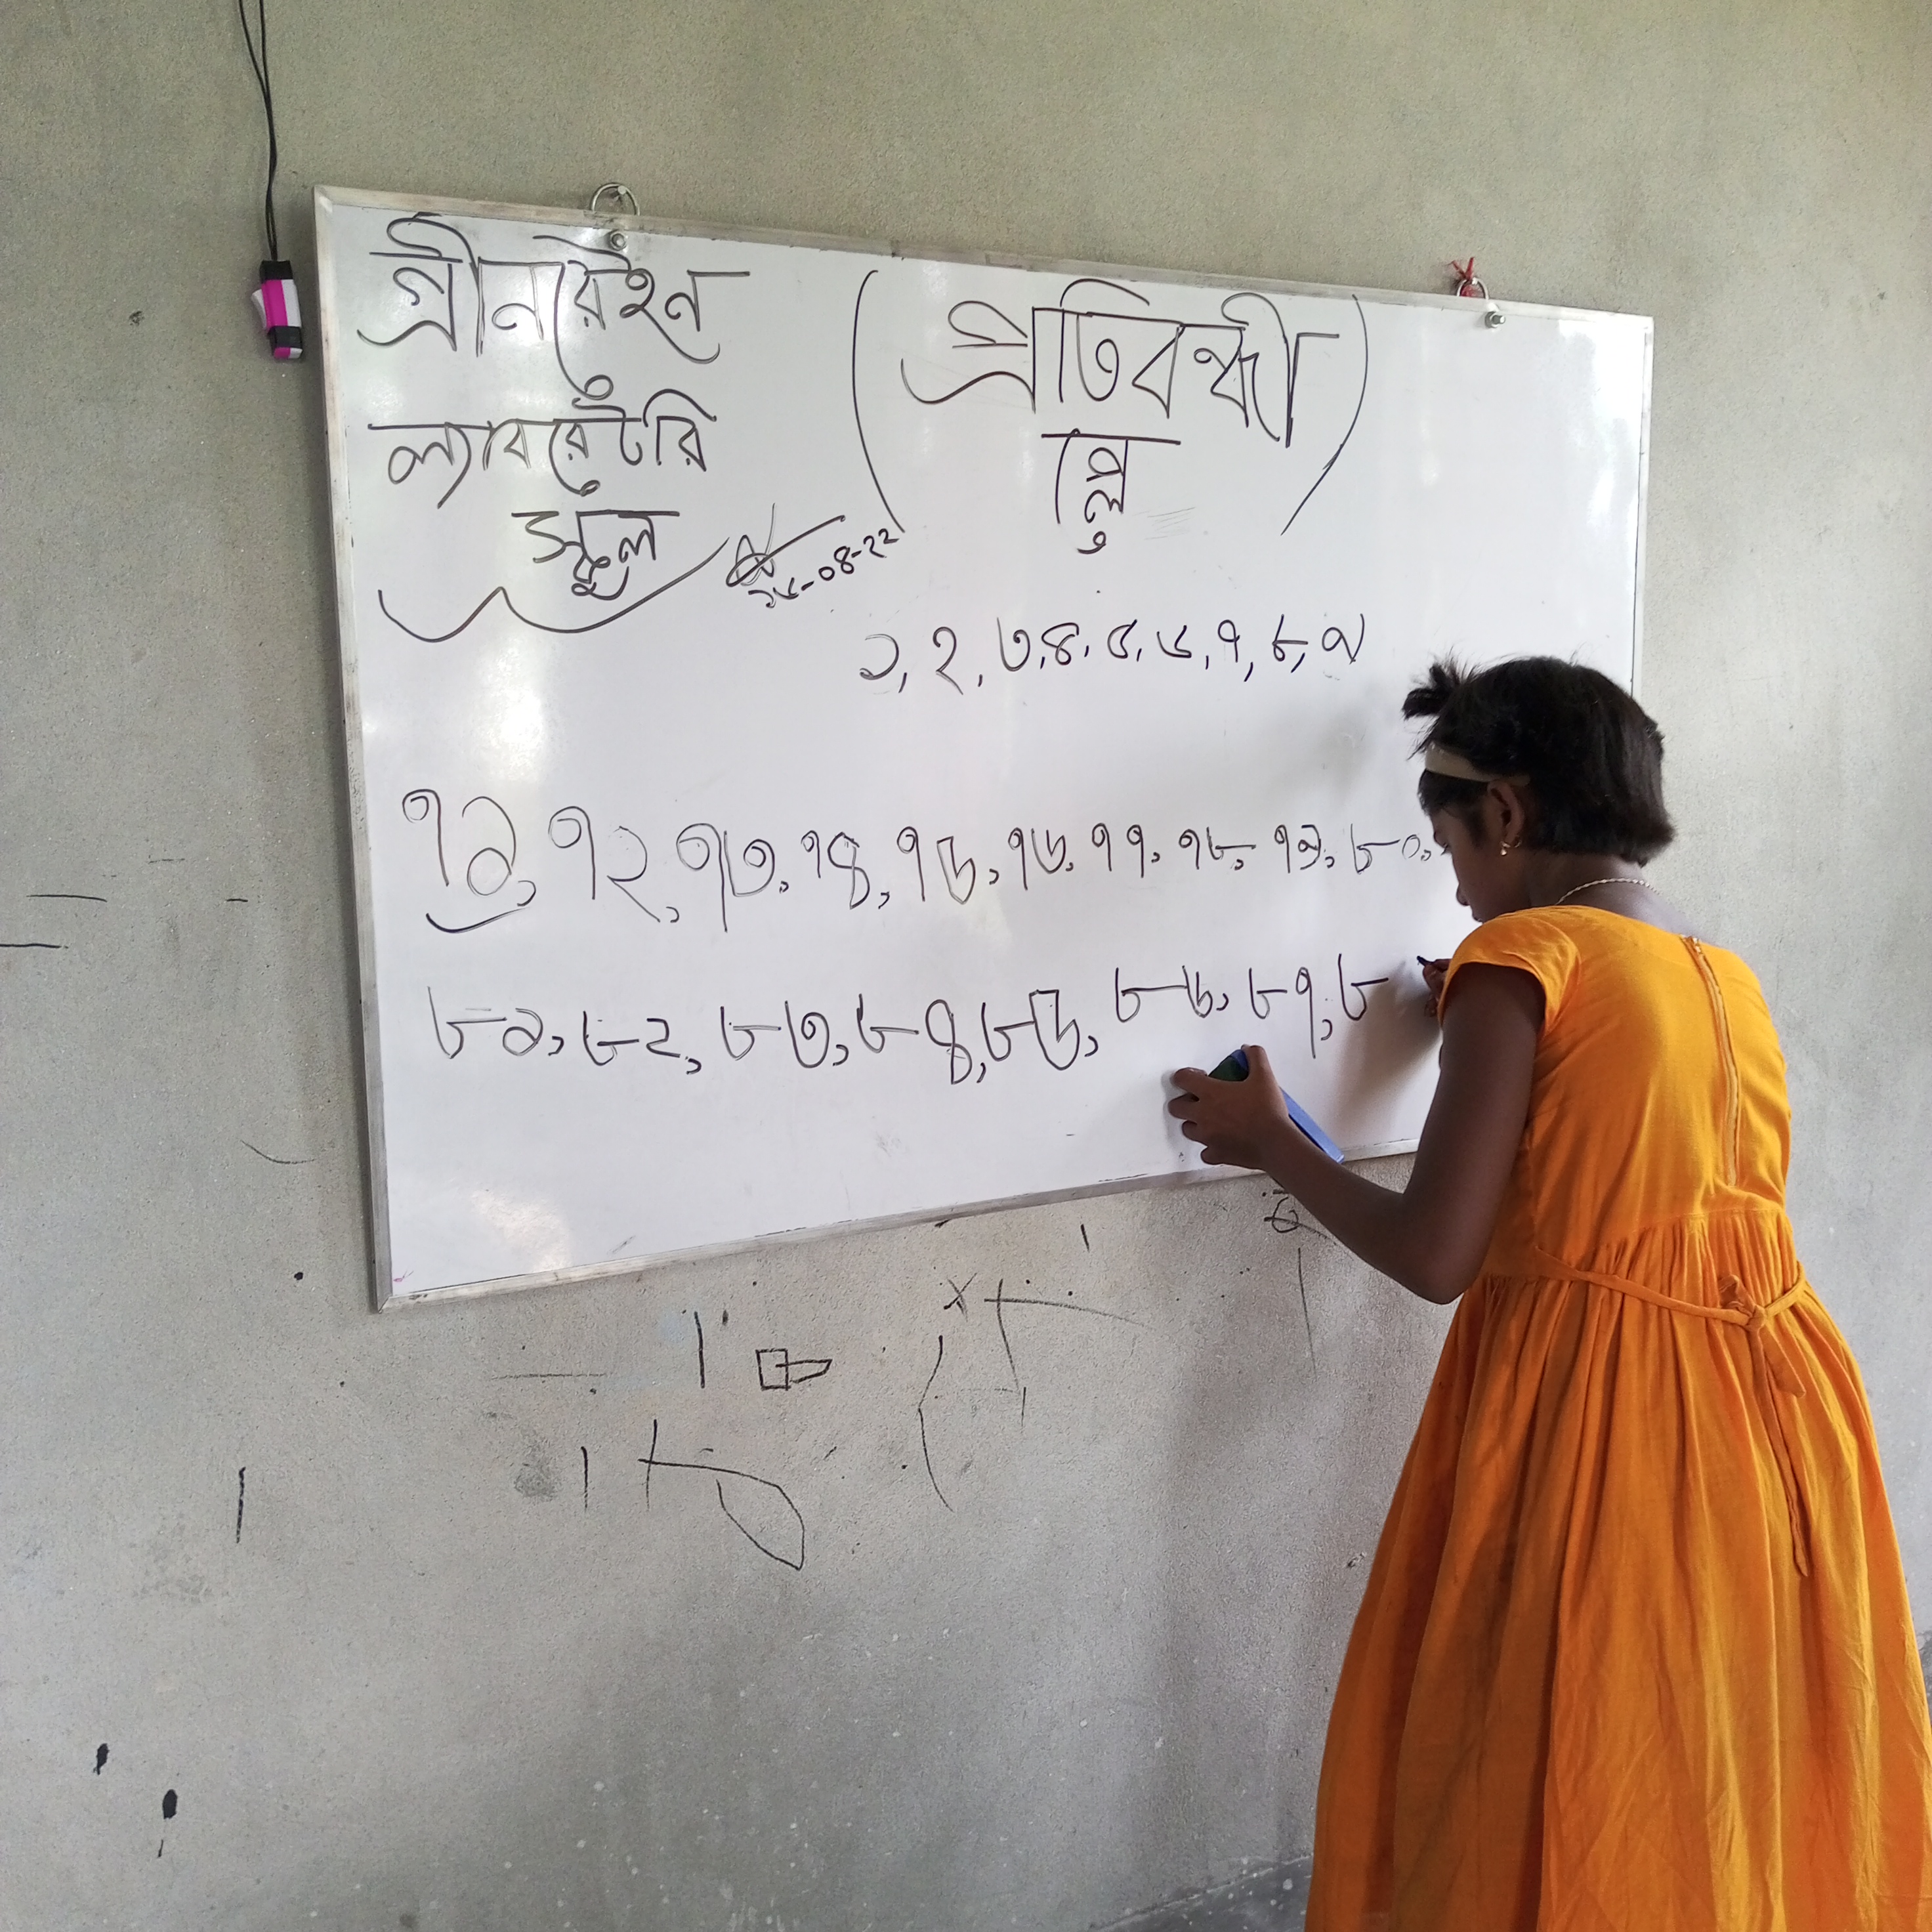 গ্রীনরেইন
ল্যাবরেটরি
স্কুল
২৬-০৪-২২
(প্রতিবন্ধী
প্লে)
১, ২, ৩, ৪, ৫, ৬, ৭, ৮, ৯
৭১, ৭২, ৭৩, ৭৪, ৭৫, ৭৬, ৭৭, ৭৮, ৭৯, ৮০,
৮১, ৮২, ৮৩, ৮৪, ৮৫, ৮৬, ৮৭, ৮